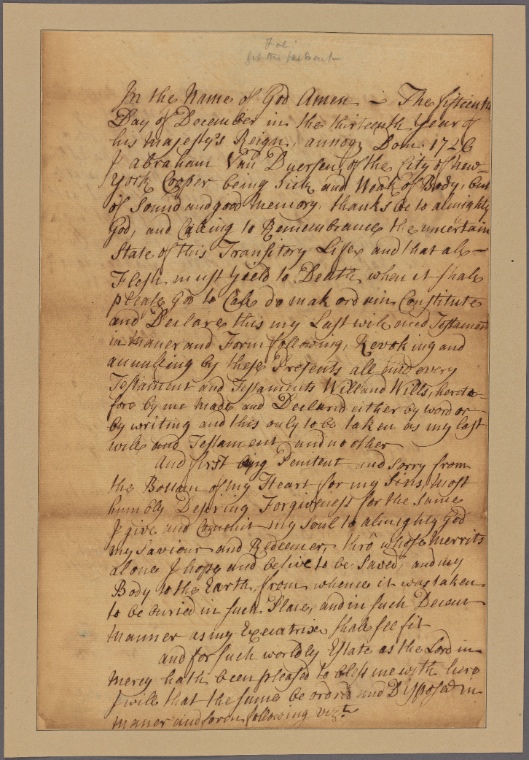 In the Name of God Amen – The fifteenth
Day of December in the thirteenth year of
his Majesty's Reign annoq Dom: 1726
I abraham Van Duersen of the City of new-
York Cooper being Sick and Weak of Body; but
of Sound and good memory, thanks be to almighty
God, and Calling to Remembrance the uncertain
State of this Transitory Life and that all
Flesh must yield to Death when it shall
please God to Call do mak ordain Constitute
and Declare this my Last will and Testament
in maner and Form following, Revoking and
annulling by these Presents all and every
Testament and Testaments Will and Wills, hereto-
fore by me made and Declared either by word or
by writing and this only to be taken as my last
will and Testament and no other
And first being Penitent and sorry from
the Bottom of my Heart for my Sins most
humbly Desiring Forgivness for the same
I give and Commit my soul to almighty God
my Saviour and Redeemer, thro whose merrits
alone I hope and belive to be Saved, and my
Body to the Earth from whence it was taken
to be buried in such Place, and in such Decent
manner as my Executrix shall see fit
and for such worldly Estate as the Lord in
mercy hath been pleased to bless me with here
I will that the same be ordred and Disposed in
maner and form following vizt